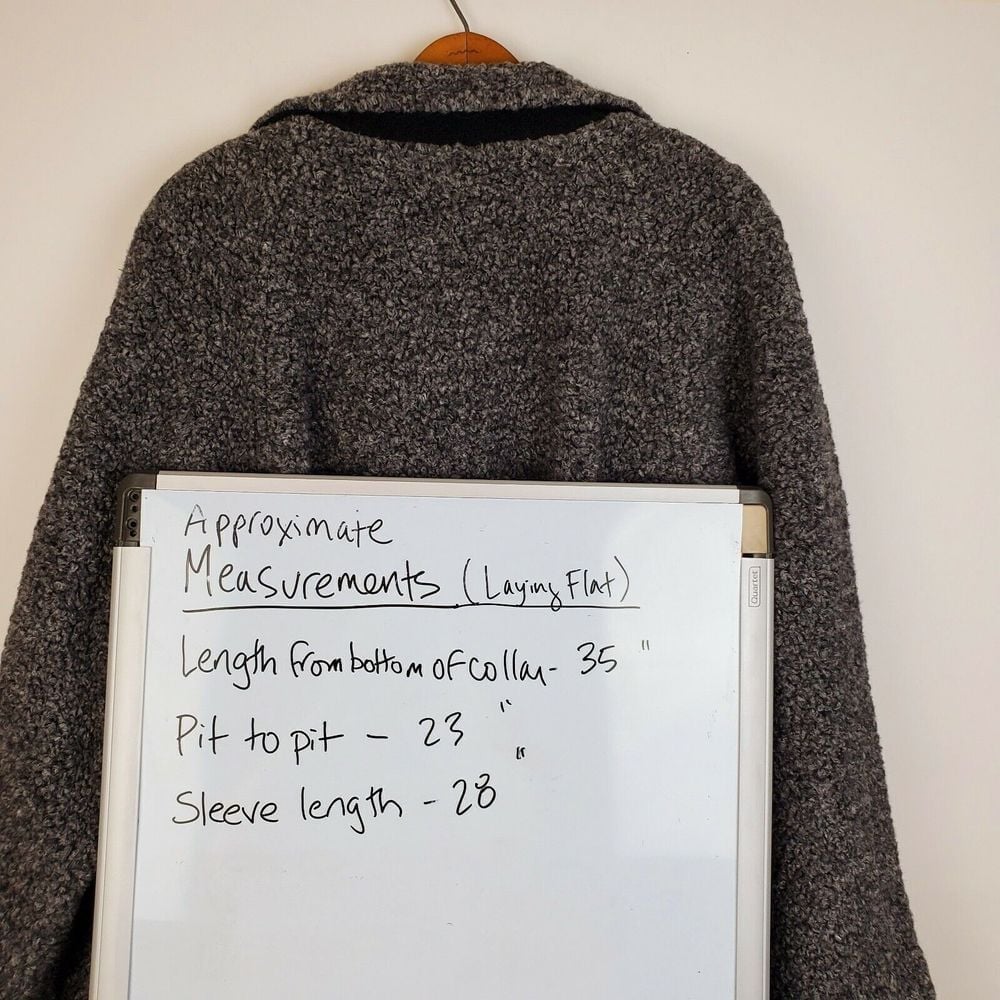 Approximate
Measurements (Laying Flat)
Quartet
Length from bottom of collar - 35"
Pit to pit - 23"
Sleeve length - 28"